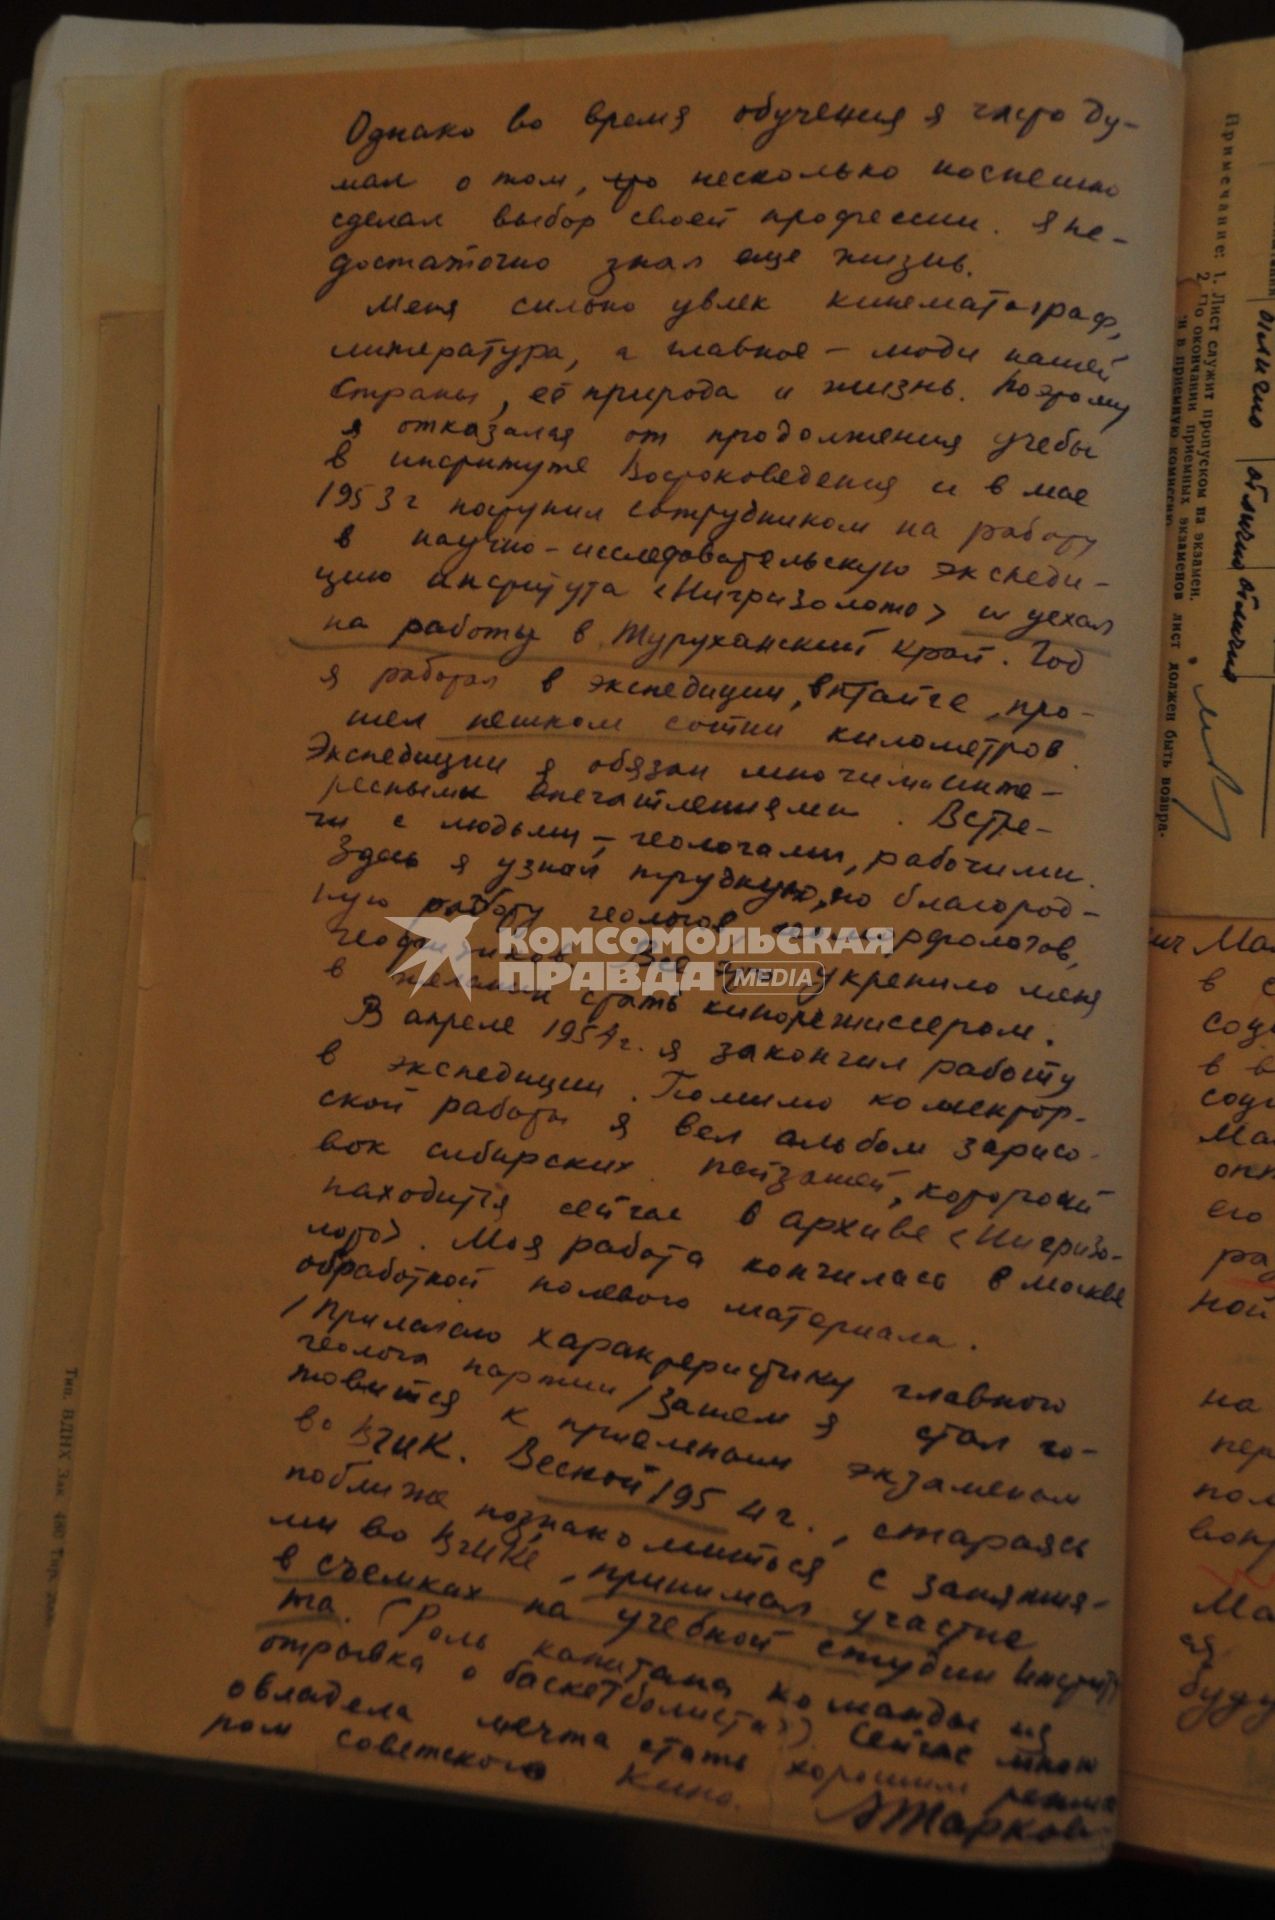 Однако во время обучения я часто ду-
мал о том, что несколько поспешно
сделал выбор своей профессии. Я не-
достаточно знал еще жизнь.
Меня сильно увлек кинематограф,
литература, а главное – люди нашей
страны, её природа и жизнь. Поэтому
я отказался от продолжения учебы
в институте Востоковедения и в мае
1953 г поступил сотрудником на работу
в научно-исследовательскую экспеди-
цию института <Нигризолото> и уехал
на работы в Туруханский край. Год
я работал в экспедиции, в тайге, про-
шел пешком сотни километров.
Экспедиции я обязан многими инте-
ресными впечатлениями. Встре-
чи с людьми – геологами, рабочими.
Здесь я узнал трудную, но благород-
ную работу геологов, геоморфологов,
геофизиков. Все это укрепило меня
в желании стать кинорежиссером.
В апреле 1954 г. я закончил работу
в экспедиции. Помимо коллектор-
ской работы я вел альбом зарисо-
вок сибирских пейзажей, который
находится сейчас в архиве <Нигризо-
лото>. Моя работа кончилась в Москве
обработкой полевого материала.
/Прилагаю характеристику главного
геолога партии/ Затем я стал го-
товится к приемным экзаменам
во ВГИК. Весной 1954 г., стараясь
поближе познакомиться с занятия-
ми во ВГИКе, принимал участие
в съемках на учебной студии институ
та. (Роль капитана команды из
отрывка о баскетболистах) Сейчас мною
овладела мечта стать хорошим режиссе
ром советского кино.
АТарков
КОМСОМОЛЬСКАЯ
ПРАВДА MEDIA
Примечание: 1. Лист служит пропуском на экзамен.
2. По окончании приемных экзаменов лист должен быть возвра-
н в приемную комиссию
отлично
отлично
отлично
Тип. ВДНХ Зак. 480 Тир.
ич Ма
в с
соц
в в
соци
Ма
опп
его
ра
ной
на
пер
пол
вопр
Ма
буду